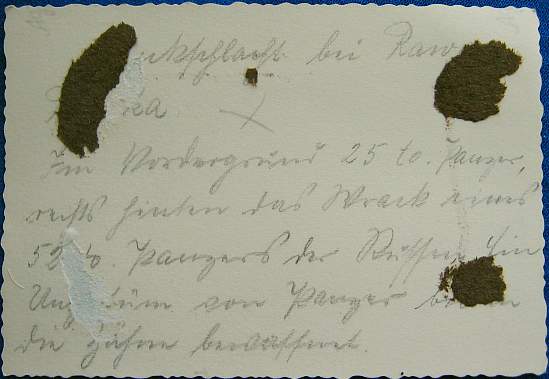 ckschlacht bei Raw
ka
Im Vordergrund 25 to. Panzer,
rechts hinten das Wrack eines
52 to. Panzers der Russen. Ein
Ung tüm von Panzer b n
die Zähne bewaffnet.